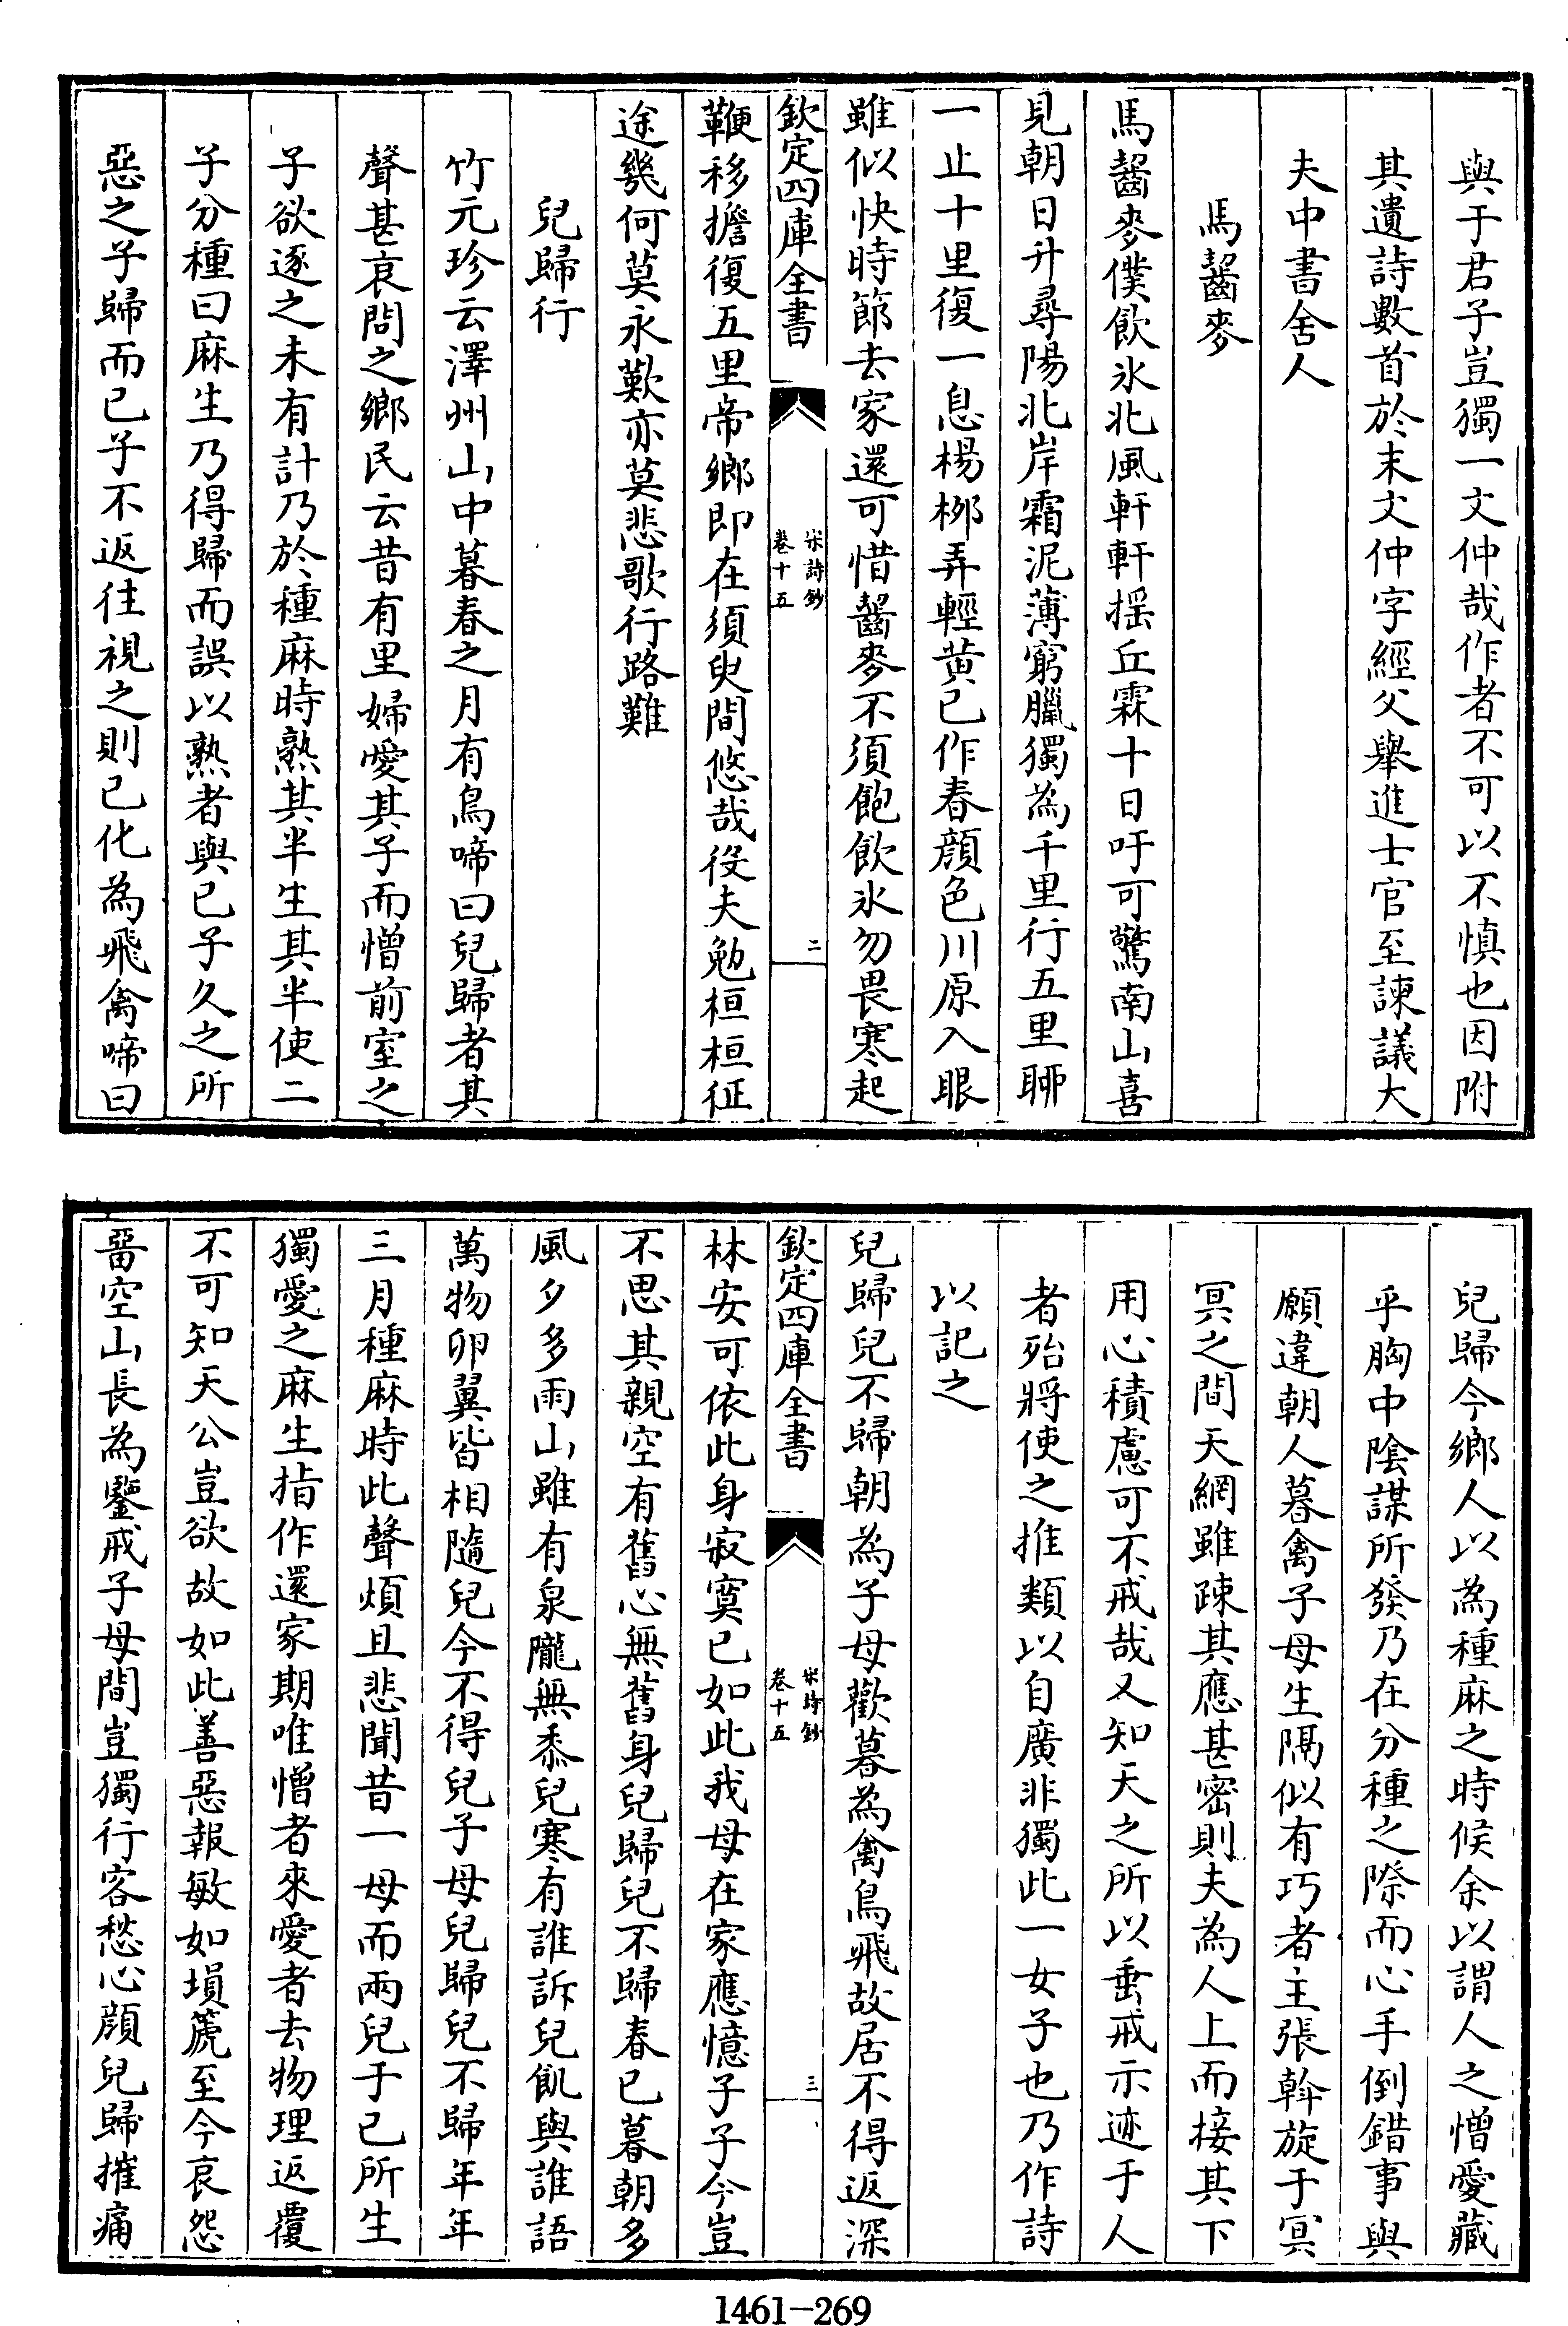 與于君子豈獨一文仲哉作者不可以不慎也因附
其遺詩數首於末文仲字經父舉進士官至諫議大
夫中書舍人
馬齧麥
馬齧麥僕飲氷北風軒軒揺丘霖十日吁可驚南山喜
見朝日升尋陽北岸霜泥薄窮臘獨為千里行五里聊
一止十里復一息楊栁弄輕黄已作春顔色川原入眼
雖似快時節去家還可惜齧麥不須飽飲氷勿畏寒起
欽定四庫全書
宋詩鈔
卷十五
二
鞭移擔復五里帝鄉即在須臾間悠哉役夫勉桓桓征
途幾何莫永歎亦莫悲歌行路難
兒歸行
竹元珍云澤州山中暮春之月有鳥啼曰兒歸者其
聲甚哀問之鄉民云昔有里婦愛其子而憎前室之
子欲逐之未有計乃於種麻時熟其半生其半使二
子分種曰麻生乃得歸而誤以熟者與已子久之所
惡之子歸而已子不返往視之則已化為飛禽啼曰
兒歸今鄉人以為種麻之時候余以謂人之憎愛藏
乎胸中陰謀所發乃在分種之際而心手倒錯事與
願違朝人暮禽子母生隔似有巧者主張斡旋于冥
冥之間天網雖踈其應甚密則夫為人上而接其下
用心積慮可不戒哉又知天之所以垂戒示迹于人
者殆將使之推類以自廣非獨此一女子也乃作詩
以記之
兒歸兒不歸朝為子母歡暮為禽鳥飛故居不得返深
欽定四庫全書
宋詩鈔
卷十五
三
林安可依此身寂寞已如此我母在家應憶子子今豈
不思其親空有舊心無舊身兒歸兒不歸春已暮朝多
風夕多雨山雖有泉隴無黍兒寒有誰訴兒飢與誰語
萬物卵翼皆相隨兒今不得兒子母兒歸兒不歸年年
三月種麻時此聲煩且悲聞昔一母而兩兒于已所生
獨愛之麻生指作還家期唯憎者來愛者去物理返覆
不可知天公豈欲故如此善惡報敏如塤篪至今哀怨
畱空山長為鑒戒子母間豈獨行客愁心顔兒歸摧痛
1461-269